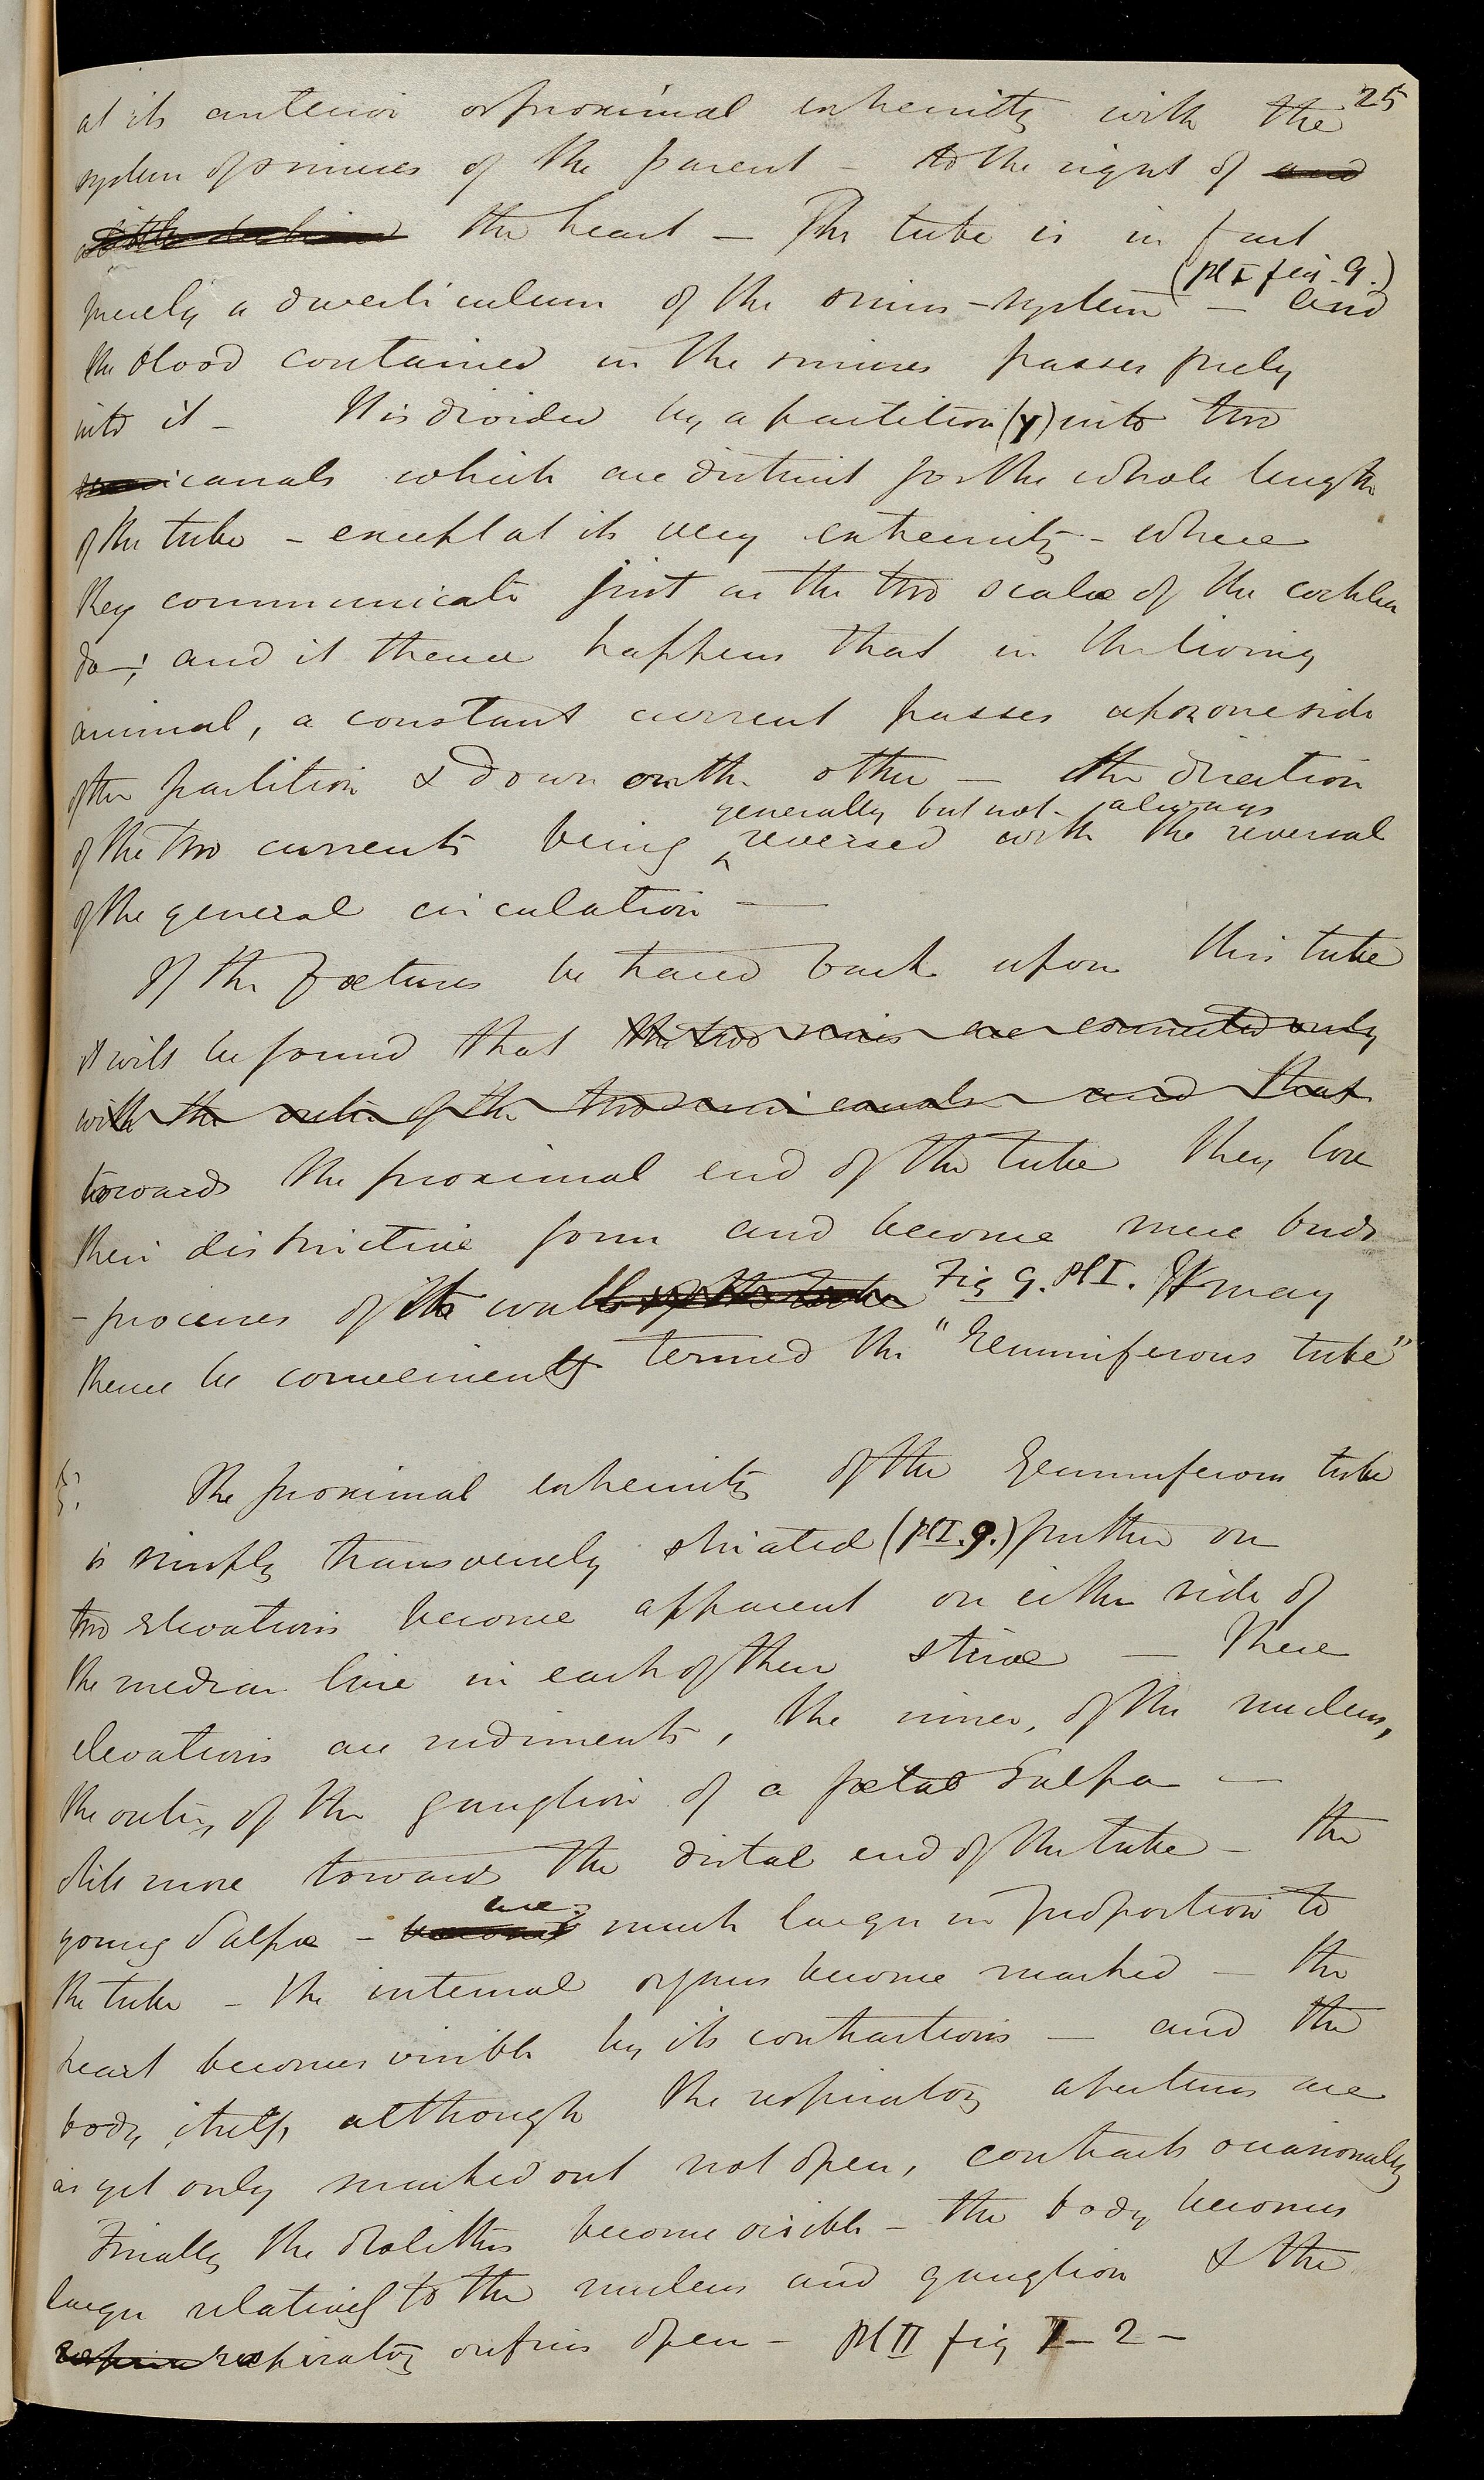 25
at its anterior or proximal extremity with the
system of sinuses of the parent – to the right of and
a little behind the heart – The tube is in fact
(pl I fig. 9.)
merely a diverticulum of the sinus-system – and
the blood contained in the sinuses passes freely
into it – It is divided by a partition (y) into two
semicanals which are distinct for the whole length
of the tube – except at its very extremity – where
they communicate just as the two scalæ of the cochlea
do –; and it thence happens that in the living
animal, a constant current passes up on one side
of the partition & down on the other – the direction
generally but not always
of the two currents being ^ reversed with the reversal
of the general circulation —
If the fœtuses be traced back upon this tube
it will be found that the two are connected only
with the outer of the two semicanals and that
towards the proximal end of the tube they lose
their distinctive form and become mere buds
– processes of its wall of the tube Fig 9. Pl I. It may
thence be conveniently termed the "Gemmiferous tube"
The proximal extremity of the Gemmiferous tube
is simply transversely striated (pl I. 9.) further on
two elevations become apparent on either side of
the median line in each of these striæ — These
elevations are rudiments, the inner, of the nucleus,
the outer, of the ganglion of a fœtal Salpa —
still more towards the distal end of the tube – the
are
young Salpæ – become much larger in proportion to
the tube – the internal organs become marked – the
heart becomes visible by its contractions — and the
body itself, although the respiratory apertures are
as yet only marked out not open, contracts occasionally
Finally the otolithes become visible – the body becomes
larger relatively to the nucleus and ganglion & the
respira respiratory orifices open – Pl II fig 1 – 2 –